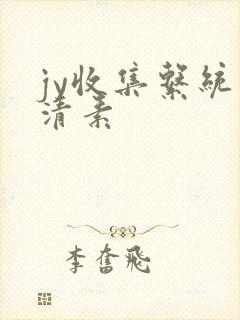 jy收集繫統
清素
李奮飛